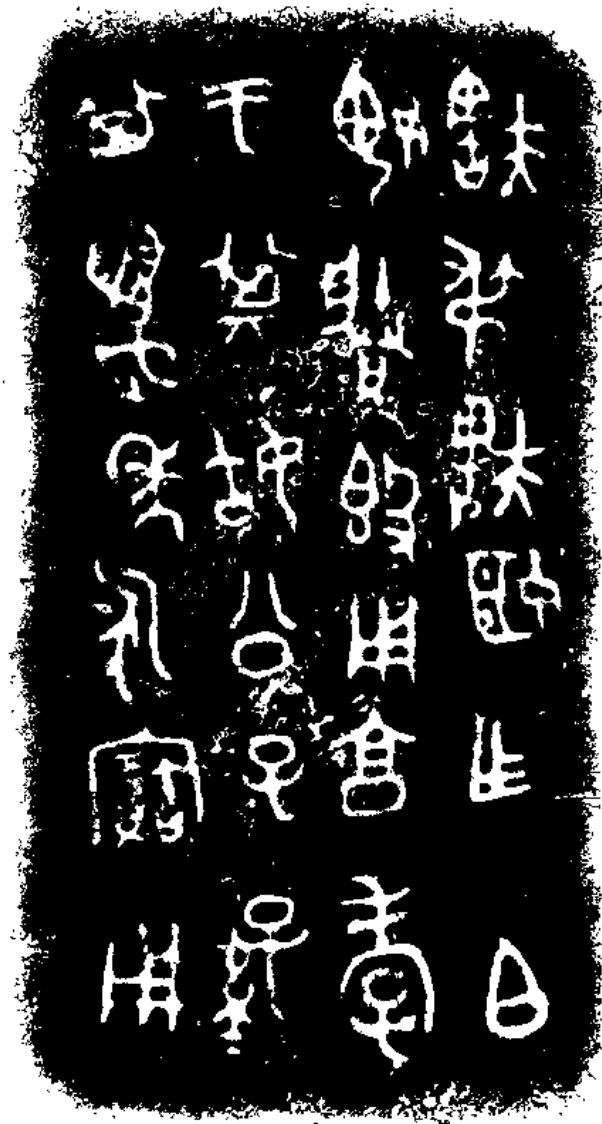 㝬叔㝬姬乍白
媿賸簋用亯孝
于其姑公子孫
其萬年永寶用